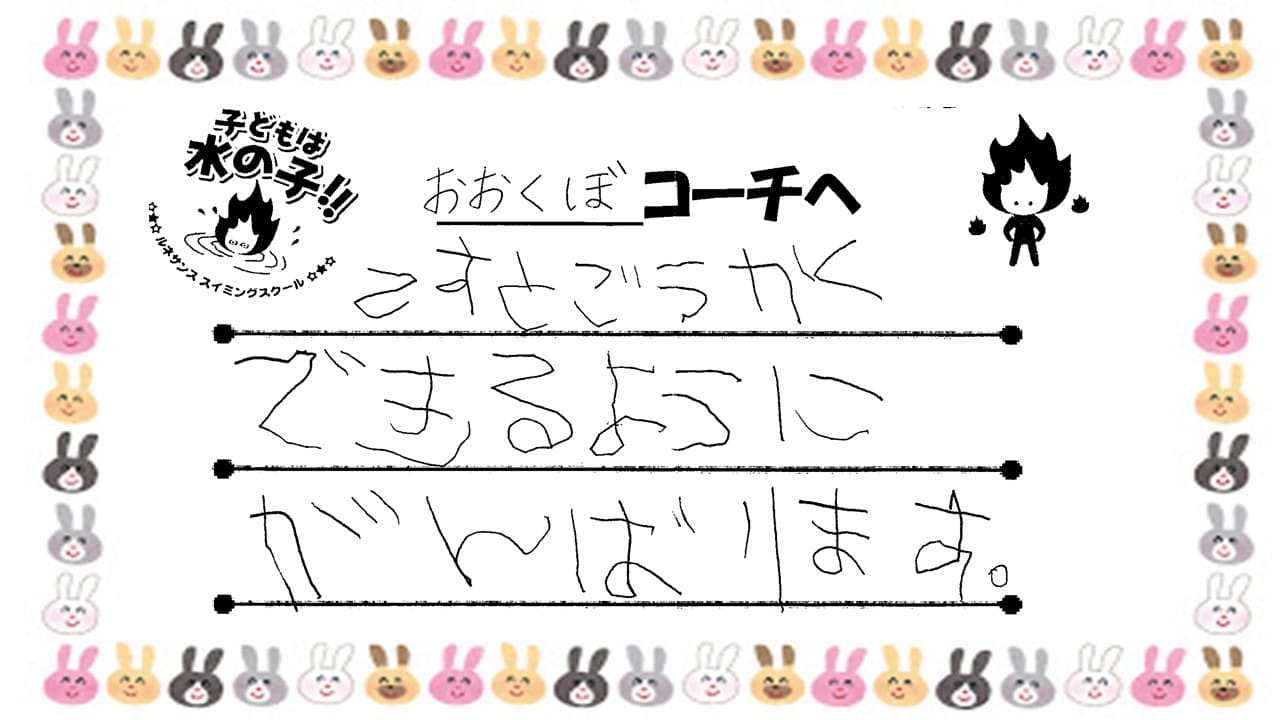 子どもは
水の子!!
☆★☆ ルネサンス スイミングスクール ☆★☆
おおくぼコーチへ
てすとごうかく
できるように
がんばります。